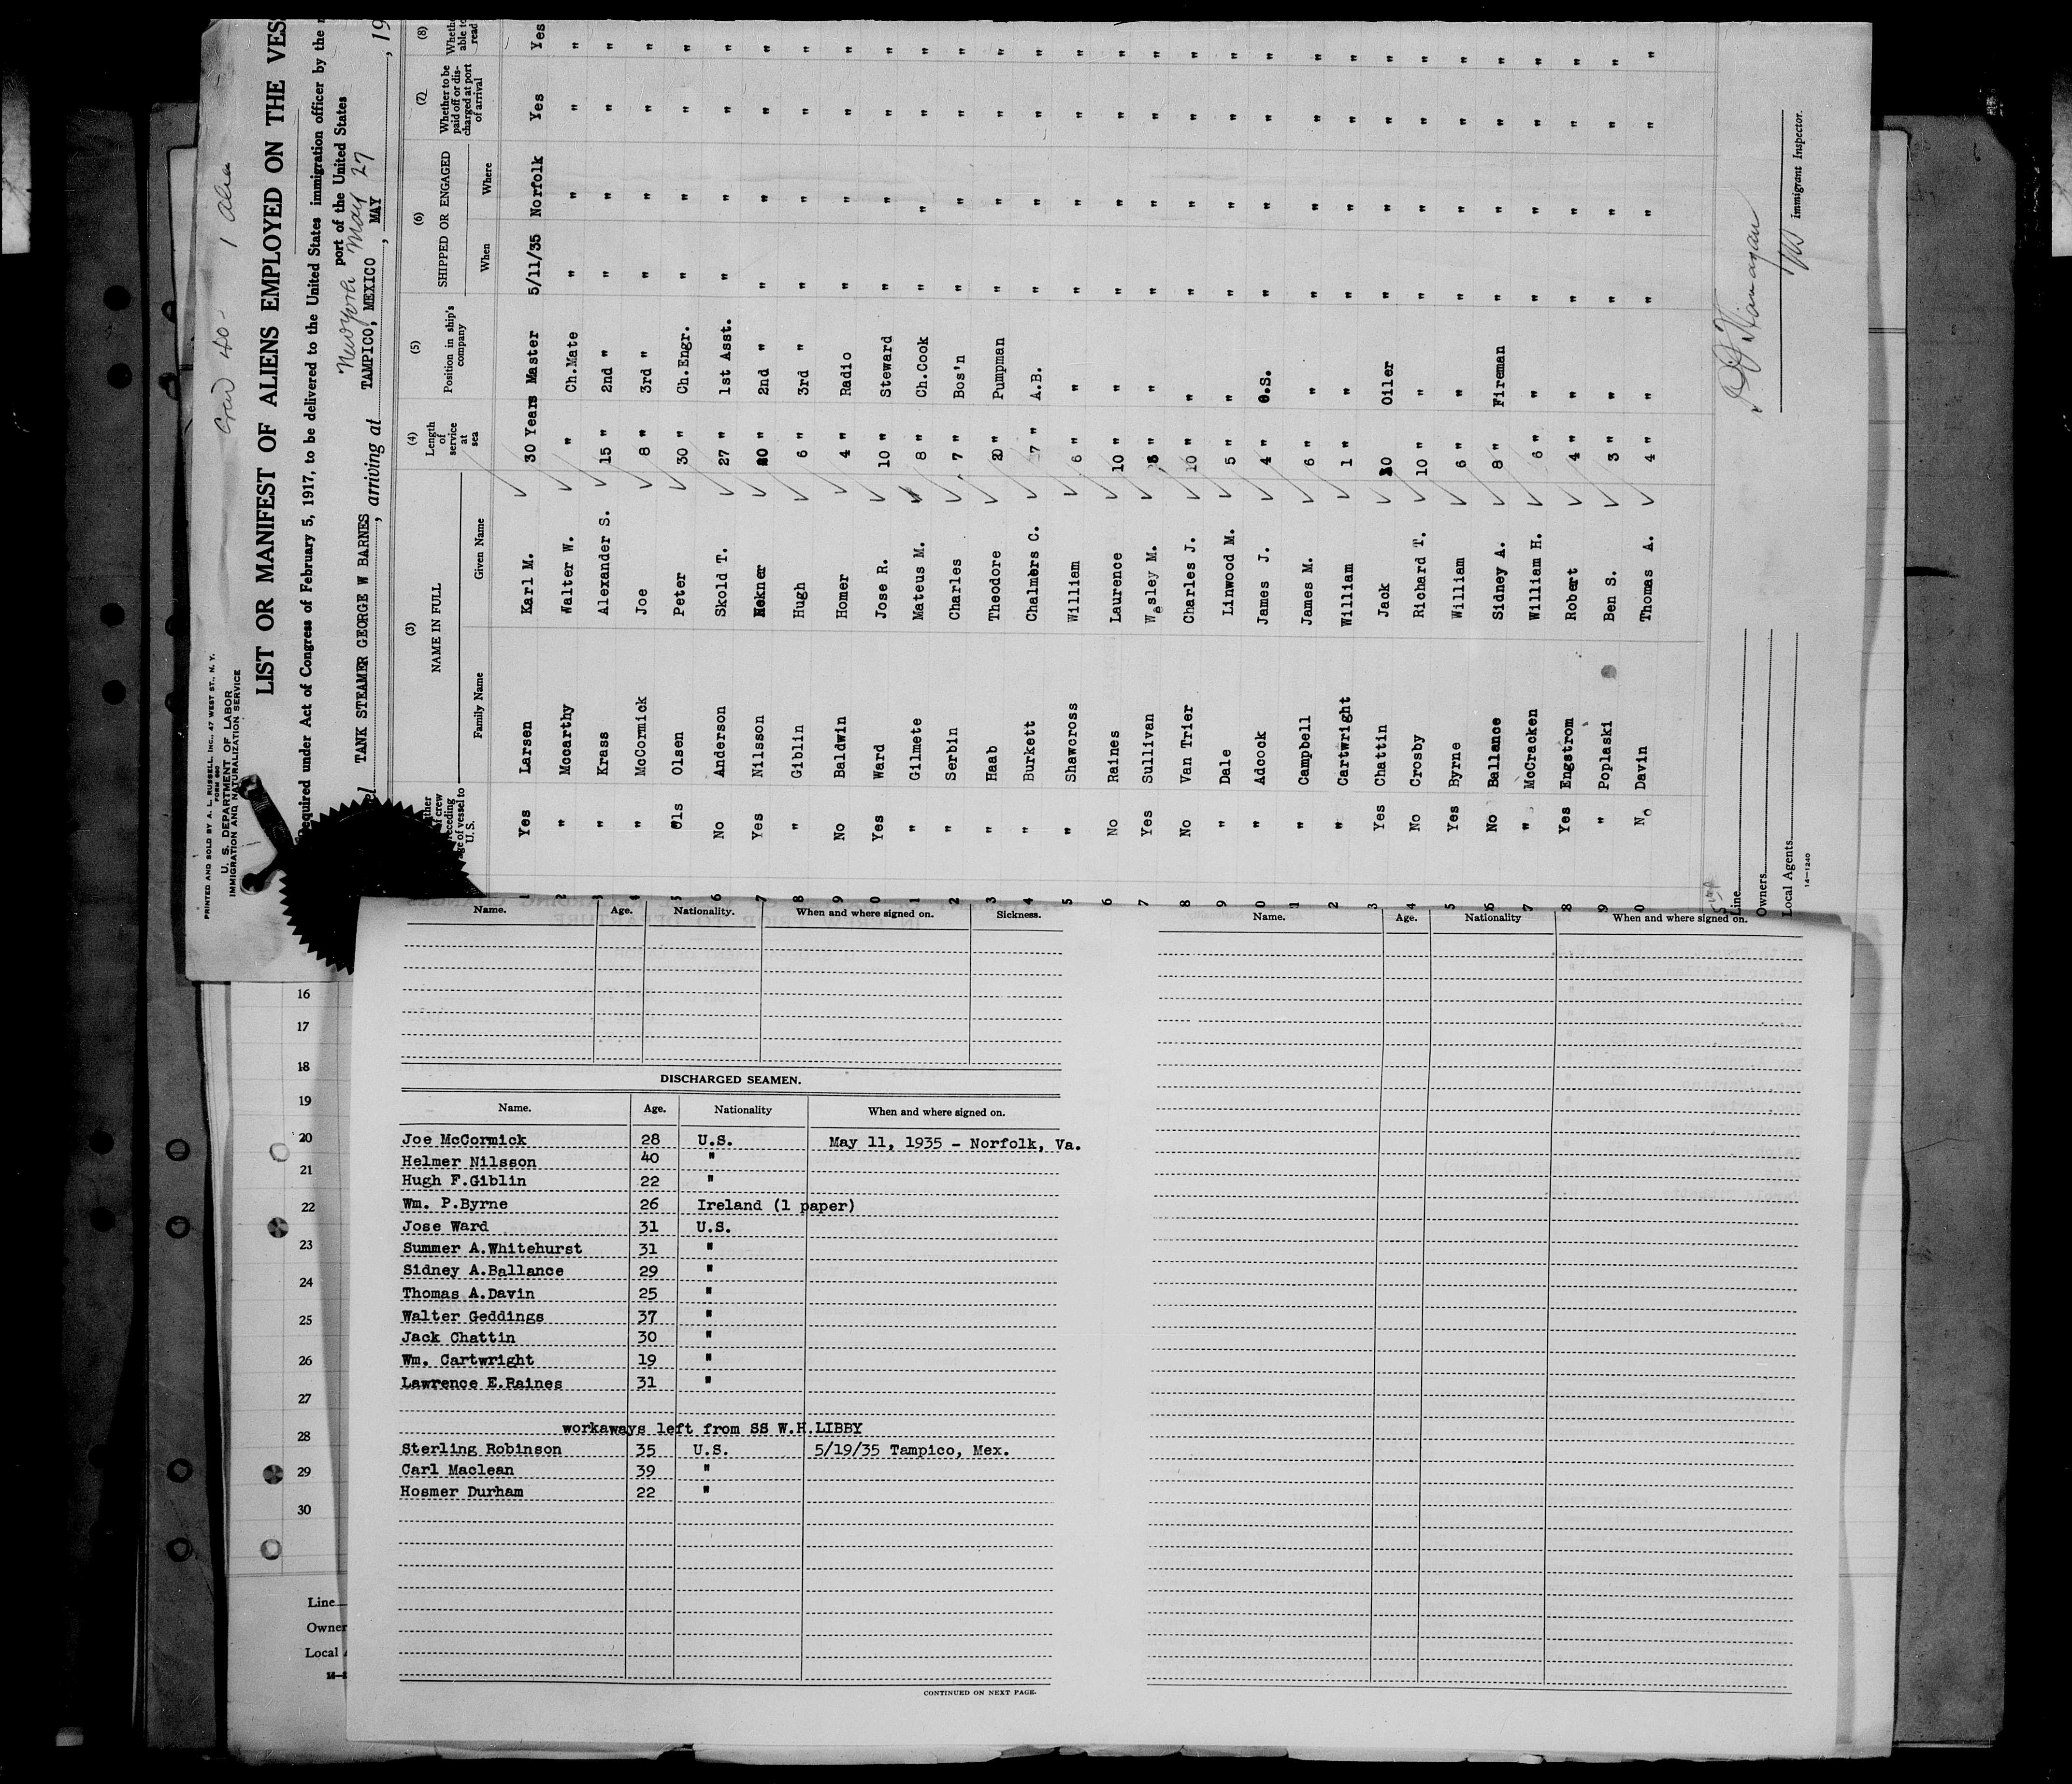 Crew 40- 1 alien
PRINTED AND SOLD BY A. L. RUSSELL, INC., 47 WEST ST., N. Y.
FORM 680
U. S. DEPARTMENT OF LABOR
IMMIGRATION AND NATURALIZATION SERVICE
LIST OR MANIFEST OF ALIENS EMPLOYED ON THE VES
Required under Act of Congress of February 5, 1917, to be delivered to the United States immigration officer by the
port of the United States
New York May 27
TANK STEAMER GEORGE W BARNES, arriving at TAMPICO, MEXICO, MAY, 19
(3) (4) (5) (6) (7) (8)
NAME IN FULL
Family Name Given Name
Length of service at sea
Position in ship's company
SHIPPED OR ENGAGED
When Where
Whether to be paid off or discharged at port of arrival
able to read
1 Yes Larsen Karl M. 30 Years Master 5/11/35 Norfolk Yes Yes
2 " Mccarthy Walter W. " Ch.Mate " " " "
3 " Krass Alexander S. 15 " 2nd " " " " "
4 " McCormick Joe 8 " 3rd " " " " "
5 Ols Olsen Peter 30 " Ch.Engr. " " " "
6 No Anderson Skold T. 27 " 1st Asst. " " " "
7 Yes Nilsson 20 " 2nd " " " " "
8 " Giblin Hugh 6 " 3rd " " " " "
9 No Baldwin Homer 4 " Radio " " " "
0 Yes Ward Jose R. 10 " Steward " " " "
1 " Gilmete Mateus M. 8 " Ch.Cook " " " "
2 " Serbin Charles 7 " Bos'n " " " "
3 " Haab Theodore 20 " Pumpman " " " "
4 " Burkett Chalmers C. 17 " A.B. " " " "
5 " Shawcross William 6 " " " " " "
6 No Raines Laurence 10 " " " " " "
7 Yes Sullivan Wesley M. " " " " " "
8 No Van Trier Charles J. 10 " " " " " "
9 " Dale Linwood M. 5 " " " " " "
0 " Adcock James J. 4 " O.S. " " " "
1 " Campbell James M. 6 " " " " " "
2 " Cartwright William 1 " " " " " "
3 Yes Chattin Jack 10 Oiler " " " "
4 No Crosby Richard T. 10 " " " " " "
5 Yes Byrne William 6 " " " " " "
6 No Ballance Sidney A. 8 " Fireman " " " "
7 " McCracken William H. 6 " " " " " "
8 Yes Engstrom Robert 4 " " " " " "
9 " Poplaski Ben S. 3 " " " " " "
0 No Davin Thomas A. 4 " " " " " "
Line
Owners
Local Agents
14-1240
Immigrant Inspector.
Name. Age. Nationality. When and where signed on. Sickness.
Name. Age. Nationality When and where signed on.
16
17
18
19
20
21
22
23
24
25
26
27
28
29
30
Line
Owner
Local
DISCHARGED SEAMEN.
Name. Age. Nationality When and where signed on.
Joe McCormick 28 U.S. May 11, 1935 - Norfolk, Va.
Helmer Nilsson 40 "
Hugh F.Giblin 22 "
Wm. P.Byrne 26 Ireland (1 paper)
Jose Ward 31 U.S.
Summer A.Whitehurst 31 "
Sidney A.Ballance 29 "
Thomas A.Davin 25 "
Walter Geddings 37 "
Jack Chattin 30 "
Wm. Cartwright 19 "
Lawrence E.Raines 31 "
workaways left from SS W.H.LIBBY
Sterling Robinson 35 U.S. 5/19/35 Tampico, Mex.
Carl Maclean 39 "
Hosmer Durham 22 "
CONTINUED ON NEXT PAGE.